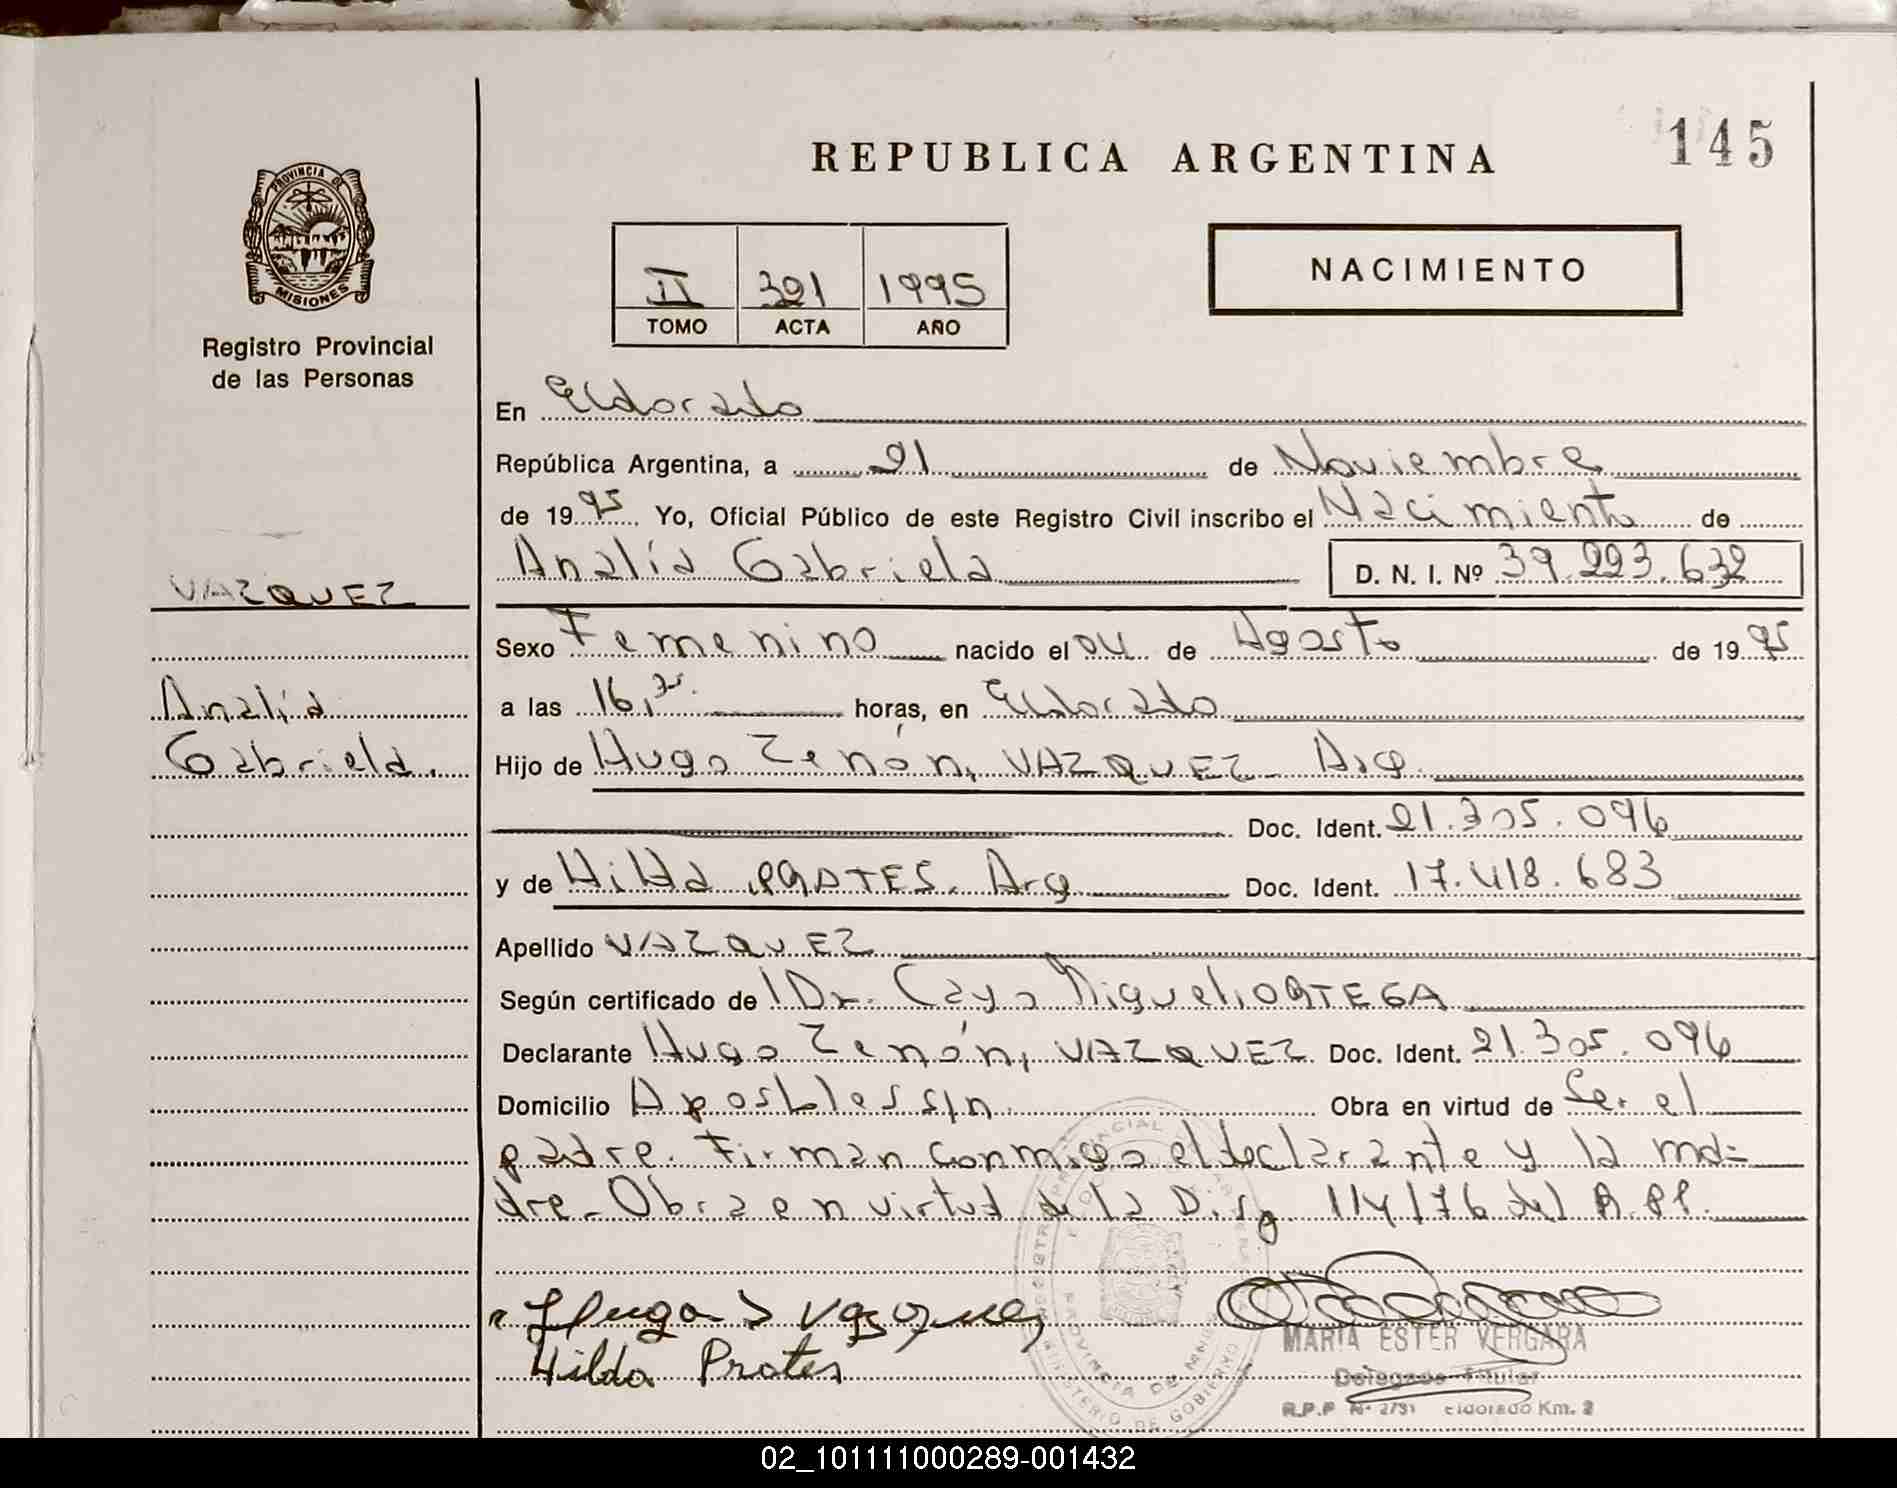 145
REPUBLICA ARGENTINA
PROVINCIA DE
MISIONES
Registro Provincial
de las Personas
NACIMIENTO
II 321 1995
TOMO ACTA AÑO
En Eldorado
República Argentina, a 21 de Noviembre
de 1995 Yo, Oficial Público de este Registro Civil inscribo el Nacimiento de
Analía Gabriela D. N. I. Nº 39.223.632
VAZQUEZ
Analía
Gabriela.
Sexo Femenino nacido el 04 de Agosto de 1995
a las 16, horas, en Eldorado
Hijo de Hugo Zenón, VAZQUEZ - Arg.
Doc. Ident. 21.305.096
y de Hilda PROTES. Arg Doc. Ident. 17.418.683
Apellido VAZQUEZ
Según certificado de Dr. Cayo Miguel, ORTEGA
Declarante Hugo Zenón, VAZQUEZ Doc. Ident. 21.305.096
Domicilio Apostoles s/n. Obra en virtud de Ser el
padre. Firman conmigo el declarante y la ma=
dre - Obra en virtud de la Disp 114/76 del R.PP.
Hugo Z Vazquez
Hilda Protes
MARIA ESTER VERGARA
Delegado Titular
R.P.P Nº 2731 Eldorado Km. 2
PROVINCIA DE
MINISTERIO DE GOBIERNO
02_101111000289-001432